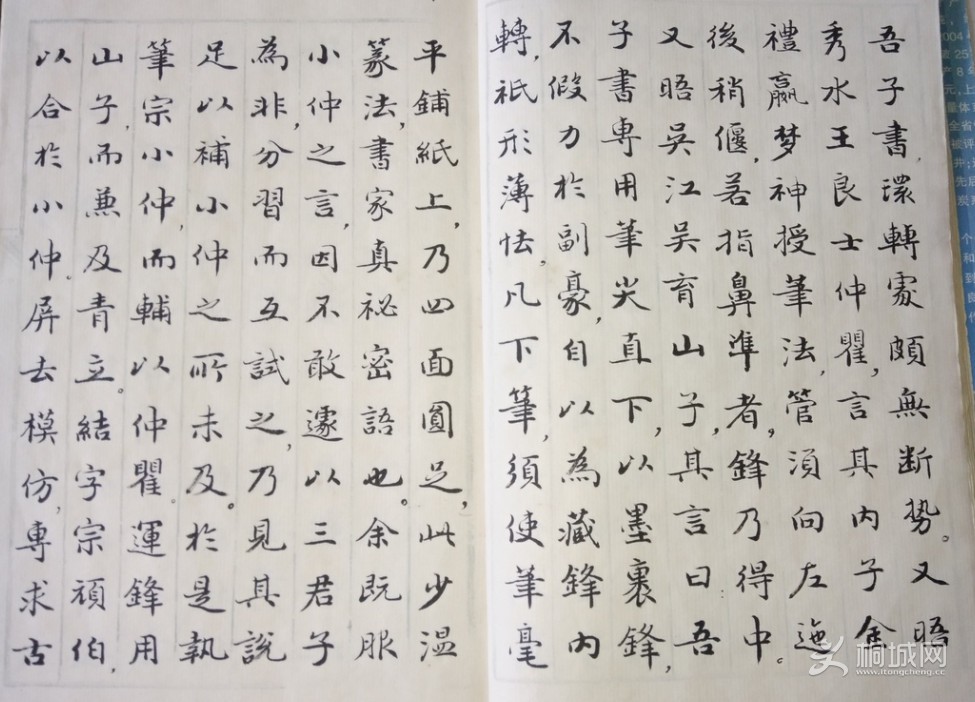 吾子書,環轉處頗無断势。又晤
秀水王良士仲瞿,言其内子金
禮嬴梦神授筆法,管須向左迤
後稍偃,若指鼻準者,鋒乃得中。
又晤吳江吳育山子,其言曰吾
子書専用筆尖直下,以墨裹鋒,
不假力於副豪,自以為藏鋒内
轉,祇形薄怯,凡下筆,須使筆毫
平鋪紙上,乃四面圓足,此少温
篆法,書家真祕密語也。余既服
小仲之言,因不敢遽以三君子
為非,分習而互試之,乃見其説
足以補小仲之所未及。於是執
筆宗小仲,而輔以仲瞿。運鋒用
山子,而兼及青立。結字宗頑伯,
以合於小仲。屏去模仿,專求古
桐城网
www.itongcheng.cc
2004